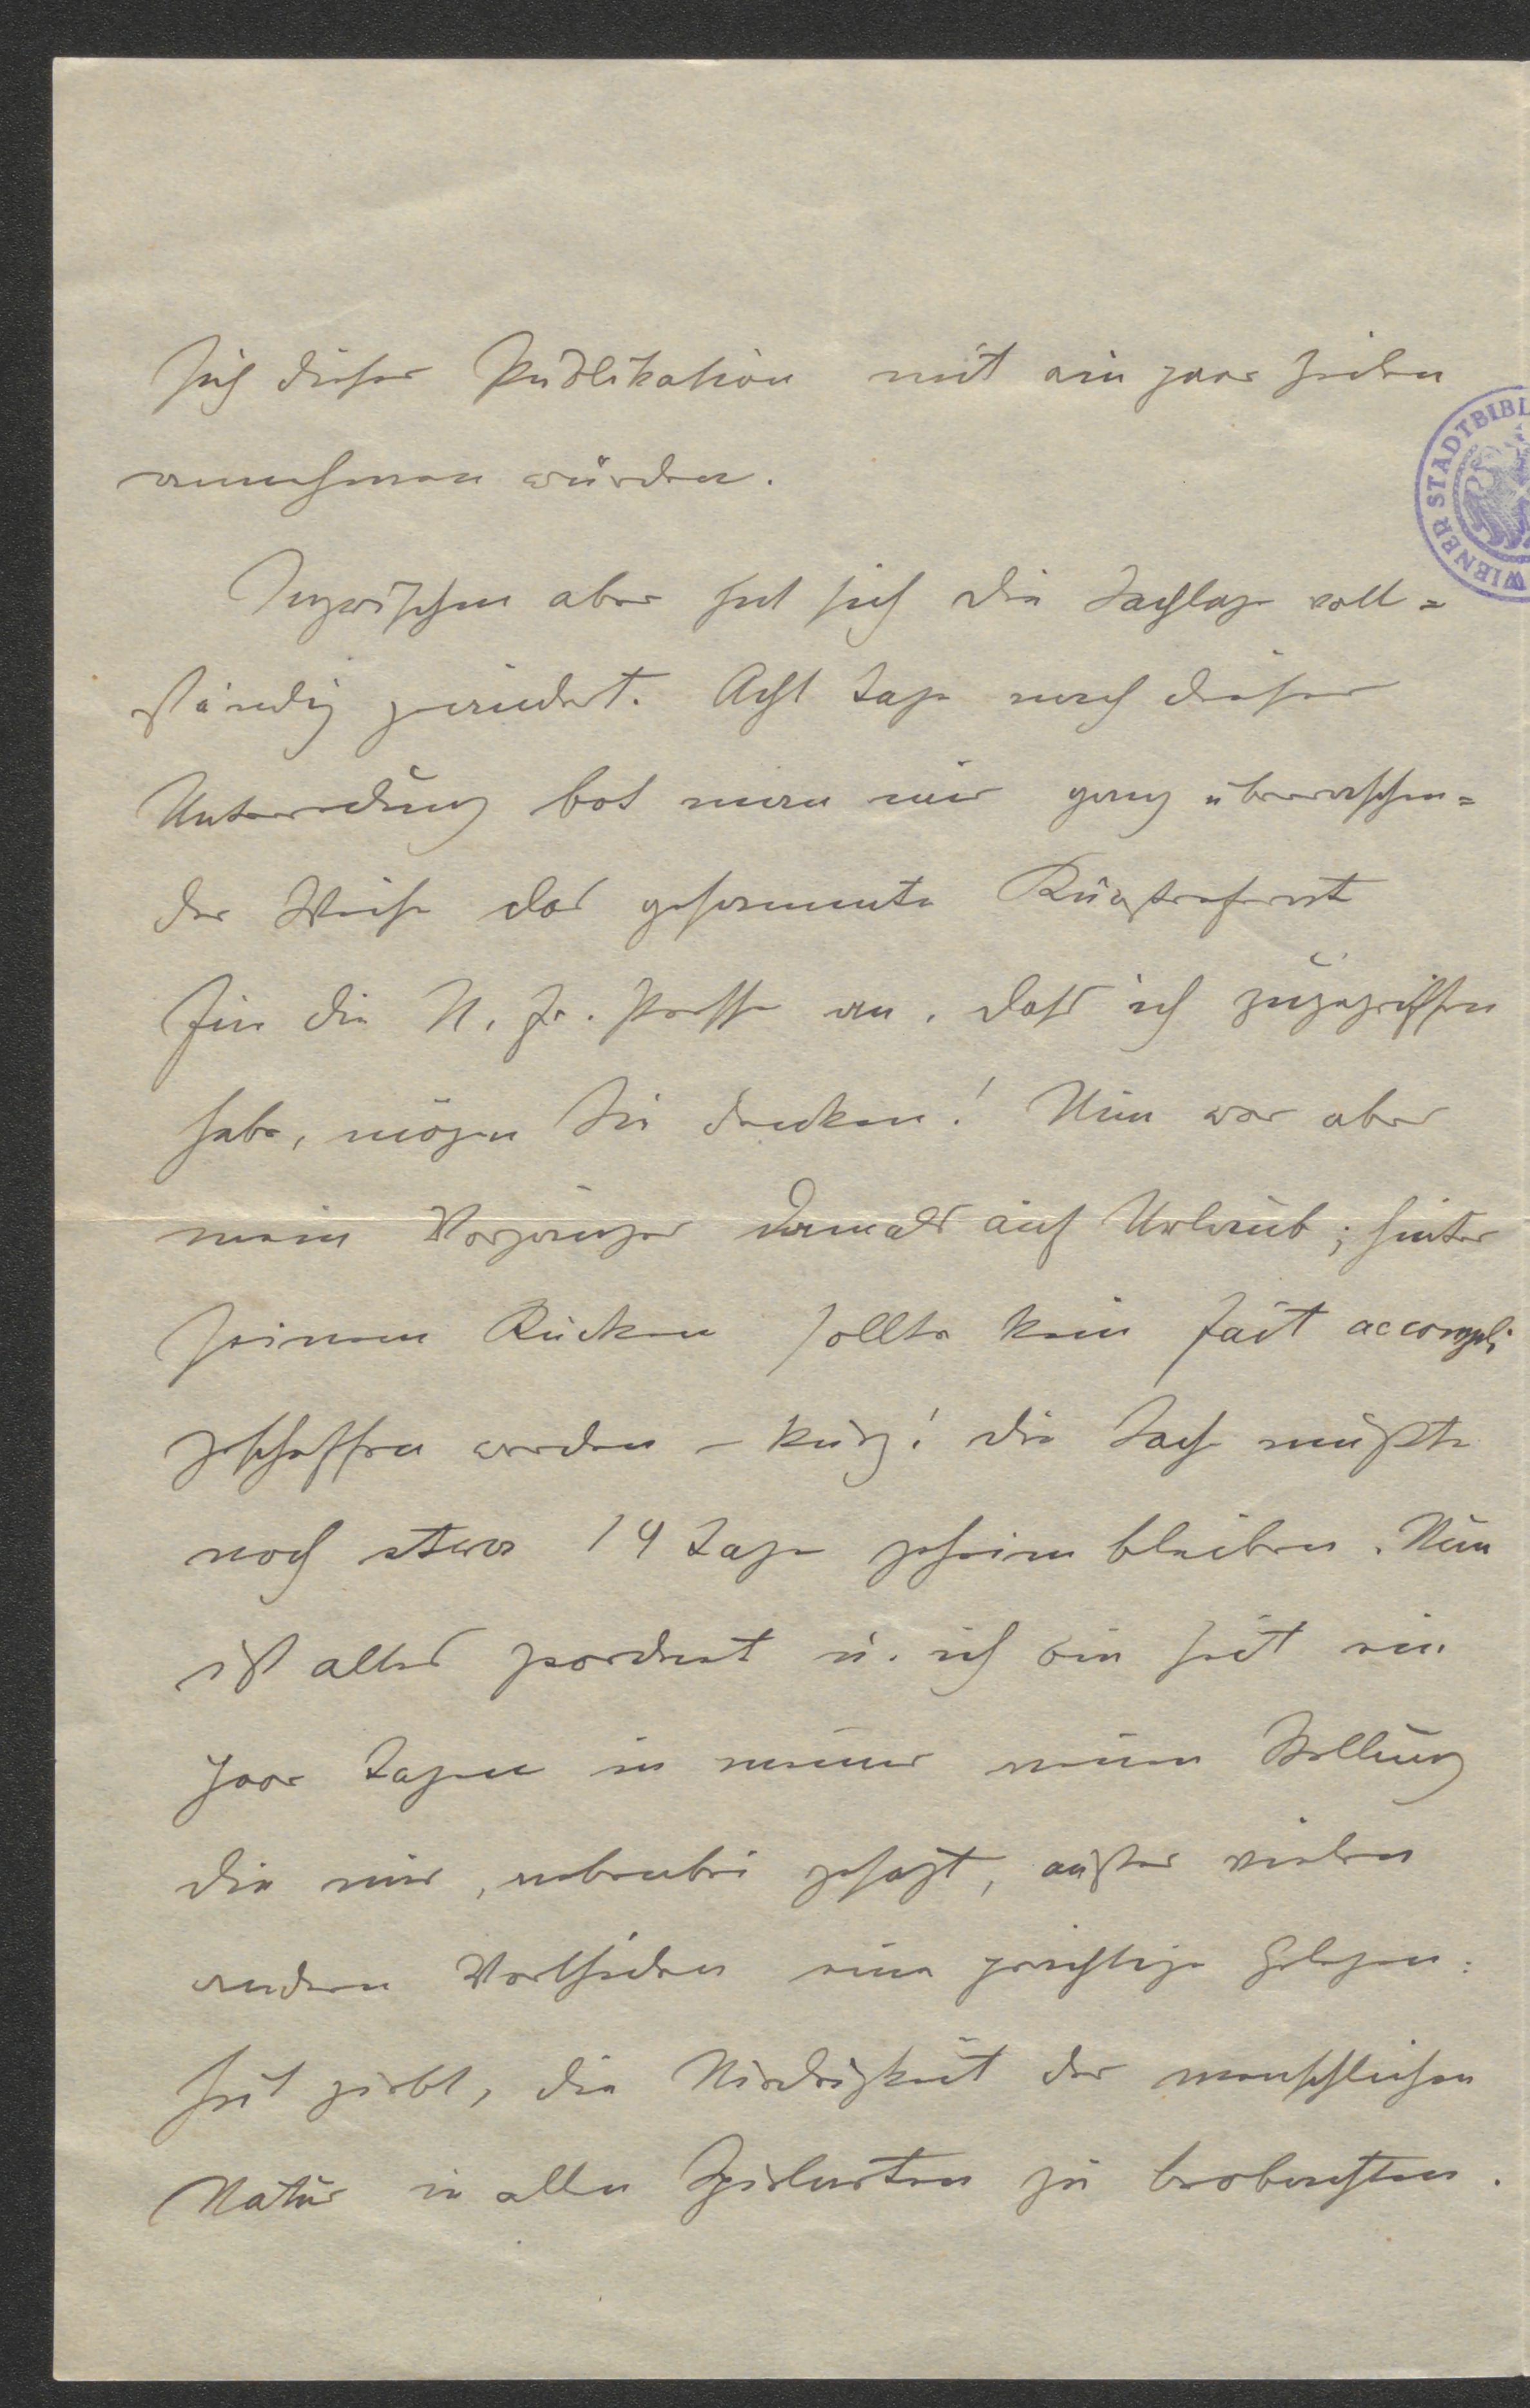 sich dieser Publikation mit ein paar Zeilen
annehmen würden.
Inzwischen aber hat sich die Sachlage voll=
ständig geändert. Acht Tage nach dieser
Unterredung bot man mir ganz überraschen=
der Weise das gesammte Kunstreferat
für die N. Fr. Presse an. Daß ich zugegriffen
habe, mögen Sie denken! Nun war aber
mein Vorgänger damals auf Urlaub; hinter
seinem Rücken sollte kein fait accompli
geschaffen werden – kurz! die Sache mußte
noch etwa 14 Tage geheim bleiben. Nun
ist alles geordnet u. ich bin seit ein
paar Tagen in meiner neuen Stellung
die mir, nebenbei gesagt, außer vielen
andern Vortheilen eine prächtige Gelegen=
heit giebt, die Niedrigkeit der menschlichen
Natur in allen Spielarten zu beobachten.
WIENER STADTBIBL